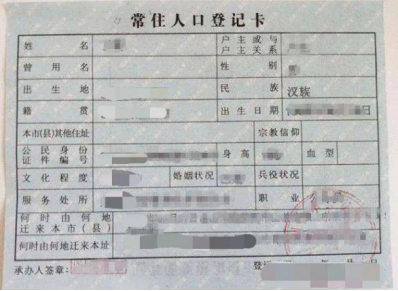 常住人口登记卡
姓名 户主或与户主关系
曾用名 性别
出生地 民族 汉族
籍贯 出生日期
本市(县)其他住址 宗教信仰
公民身份证件编号 身高 血型
文化程度 婚姻状况 兵役状况
服务处所 职业
何时由何地迁来本市(县)
何时由何地迁来本址
承办人签章: